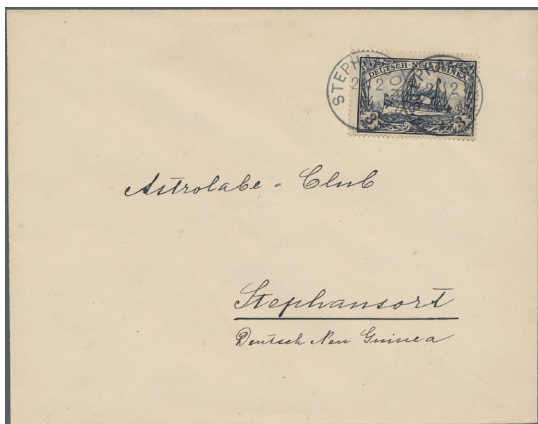 DEUTSCH NEU-GUINEA
Astrolabe - Club
Stephansort
Deutsch Neu Guinea